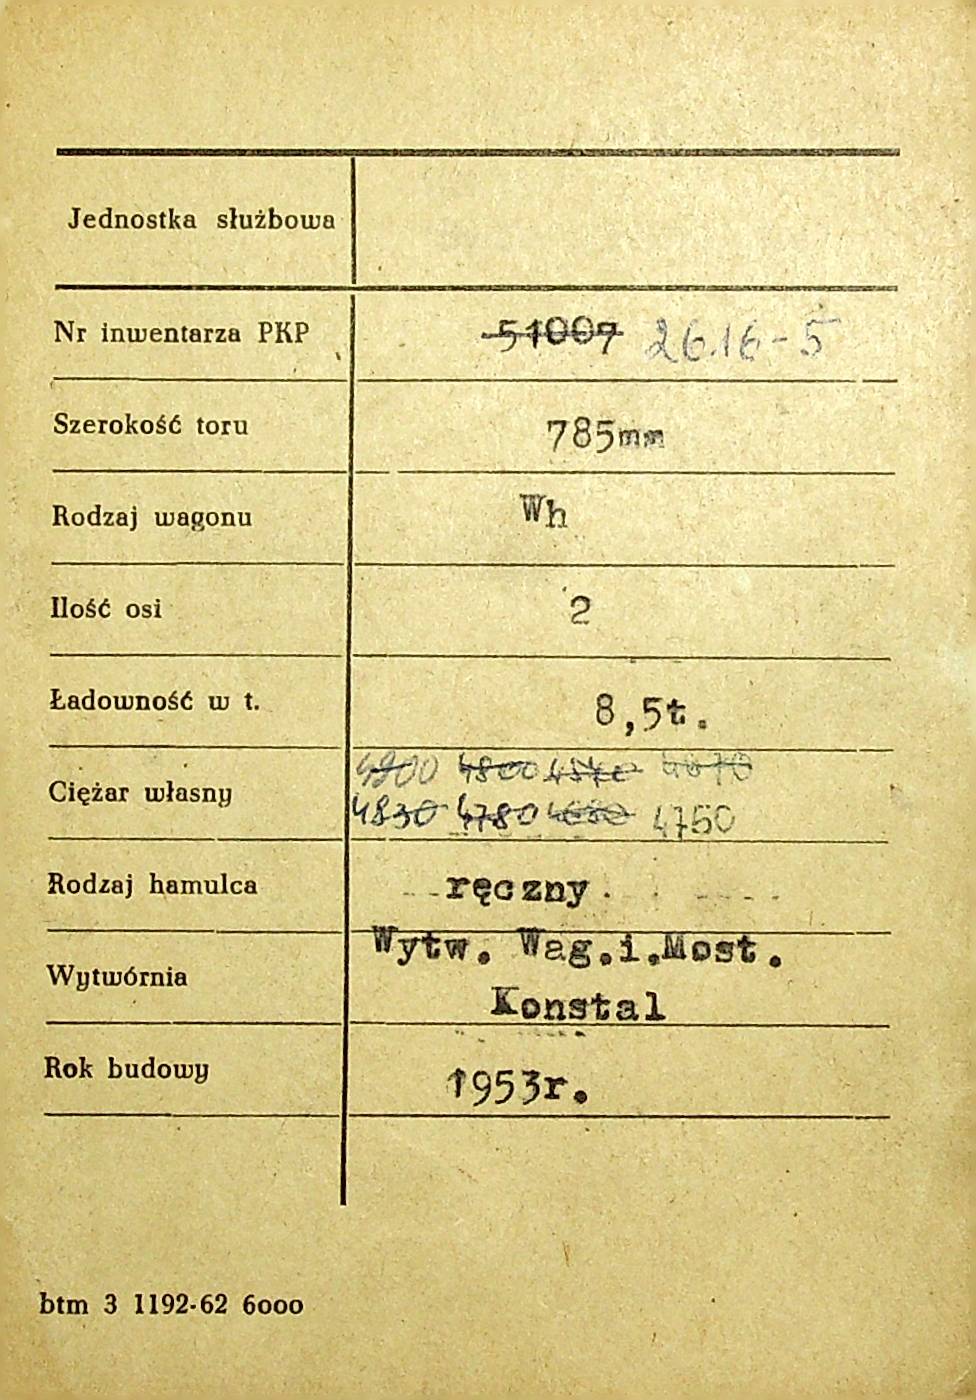 Jednostka służbowa
Nr inwentarza PKP 51007 2616-5
Szerokość toru 785mm
Rodzaj wagonu Wh
Ilość osi 2
Ładowność w t. 8,5t.
4900 4800 4840
Ciężar własny
4830 4780 4750
Rodzaj hamulca ręczny
Wytw. Wag.i.Most.
Wytwórnia
Konstal
Rok budowy 1953r.
btm 3 1192-62 6000